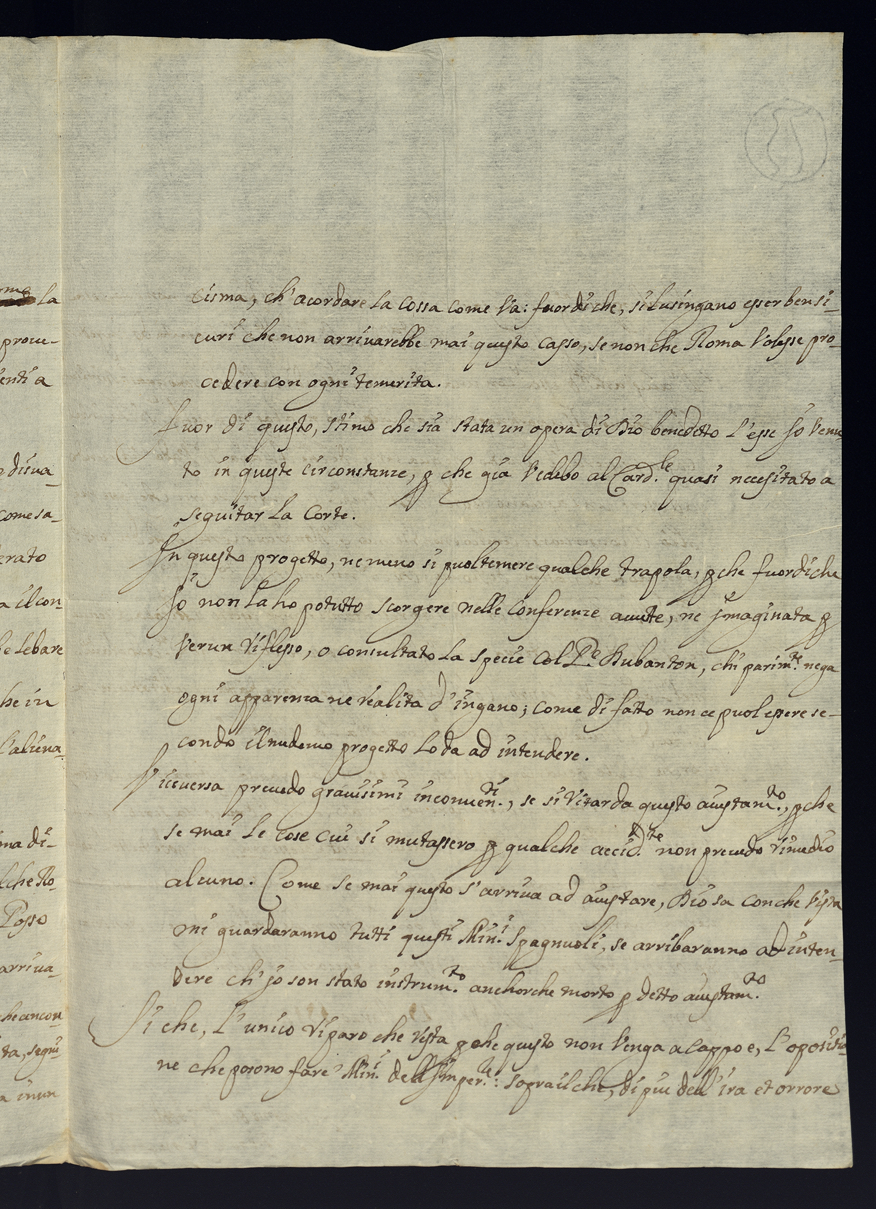 cisma, ch' acordare la cossa come va: fuordiche, si lusingano esser ben si-
curi che non arrivarebbe mai questo casso, se non che Roma volesse pro-
cedere con ogni temerita.
Fuor di questo, stimo che sia stata un opera di Dio benedetto l'esse Jo venu
to in queste circonstanze, p che gia vedebo al Card.le quasi necesitato a
seguitar la Corte.
In questo progetto, ne meno si puol temere qualche trapola, p che fuordiche
Jo non la ho potutto scorgere nelle conferenze avute, ne jmaginata p
verun riflesso, o consultato la specie col P.e Aubanton, chi parim.te nega
ogni apparenza ne realita d'ingano; come di fatto non ce puol essere se-
condo il nudemo progetto lo da ad intendere.
Viceversa prevedo gravisimi inconven.ti, se si ritarda questo ajustam.to, p che
se mai le cose cui si mutassero p qualche accid.te non prevedo rimedio
alcuno. Come se mai questo s'arriva ad ajustare, Dio sa con che vista
mi guardaranno tutti questi Min.i Spagnuoli, se arribaranno ad inten-
dere ch' jo son stato instrum.to anchorche morto p detto ajustam.to
Si che, l'unico riparo che resta p che questo non venga a cappo e, l'opositio
ne che posono fare Min.i dell'Imper.le: sopra il che, di piu dell'ira et orrore
la
prove-
enti a
disua-
come sa-
erato
a il con-
be le bare
he in
l'aliena-
ma di-
lche Ro-
Posso
arriva-
he ancon-
ta, segui-
a inun